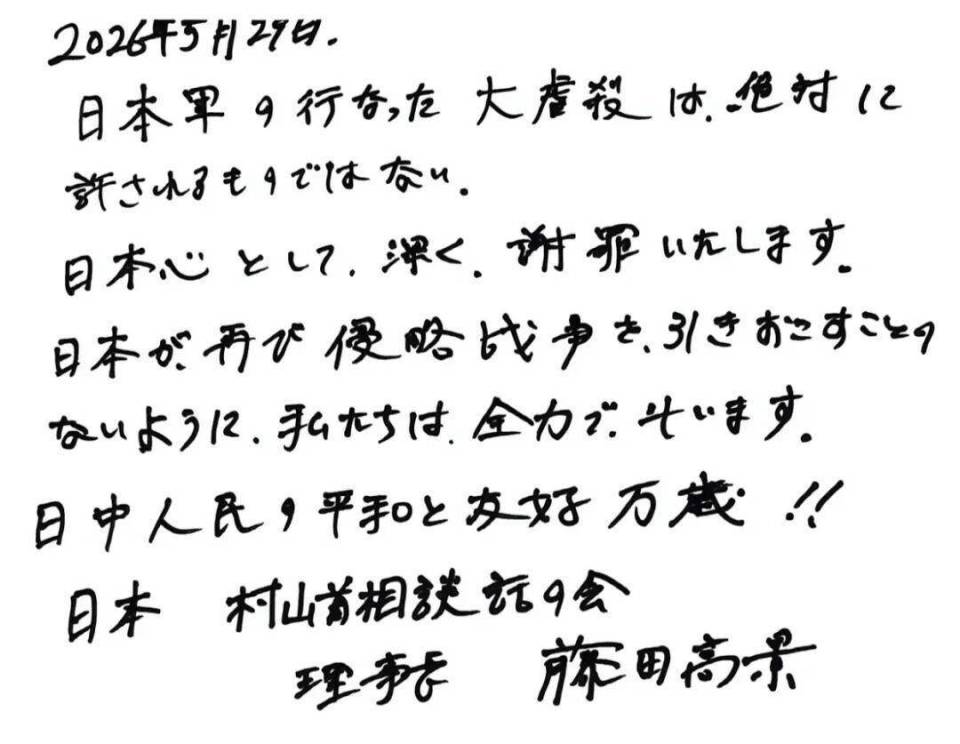 2026年5月29日.
日本軍の行なった 大虐殺は、絶対に
許されるものではない。
日本心として、深く、謝罪いたします。
日本が、再び侵略战争を、引きおこすことの
ないように、私たちは、全力で、います。
日中人民の平和と友好万歳!!
日本 村山首相談話の会
理事長 藤田高景